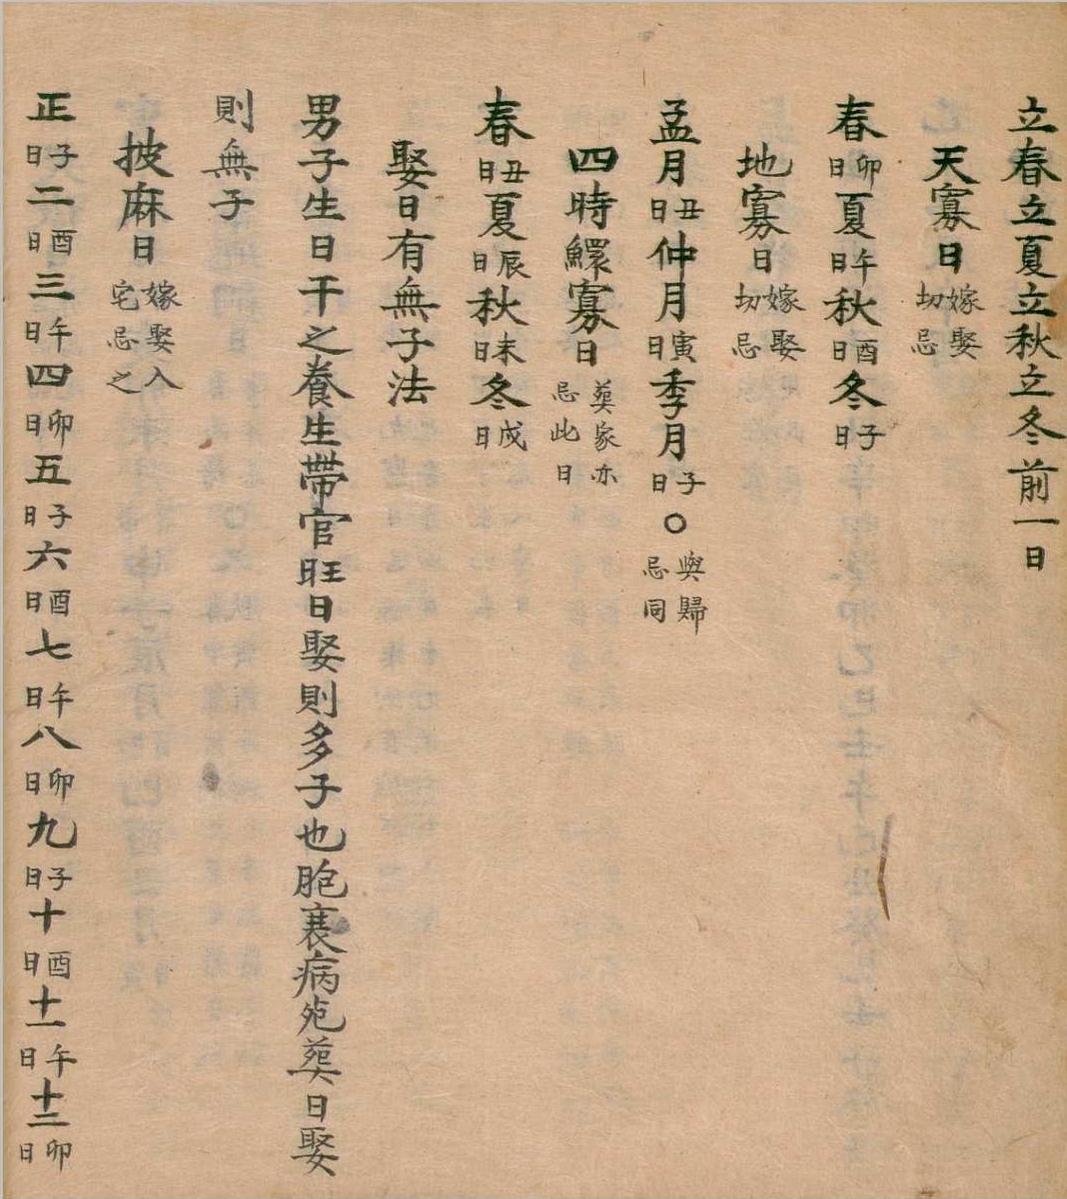 立春立夏立秋立冬前一日
天寡日 嫁娶切忌
春卯日夏午日秋酉日冬子日
地寡日 嫁娶切忌
孟月丑日仲月寅日季月子日○與歸忌同
四時鰥寡日 葬家亦忌此日
春丑日夏辰日秋未日冬戌日
娶日有無子法
男子生日干之養生帶官旺日娶則多子也胞衰病死葬日娶
則無子
披麻日 嫁娶入宅忌之
正子日二酉日三午日四卯日五子日六酉日七午日八卯日九子日十酉日十一午日十二卯日